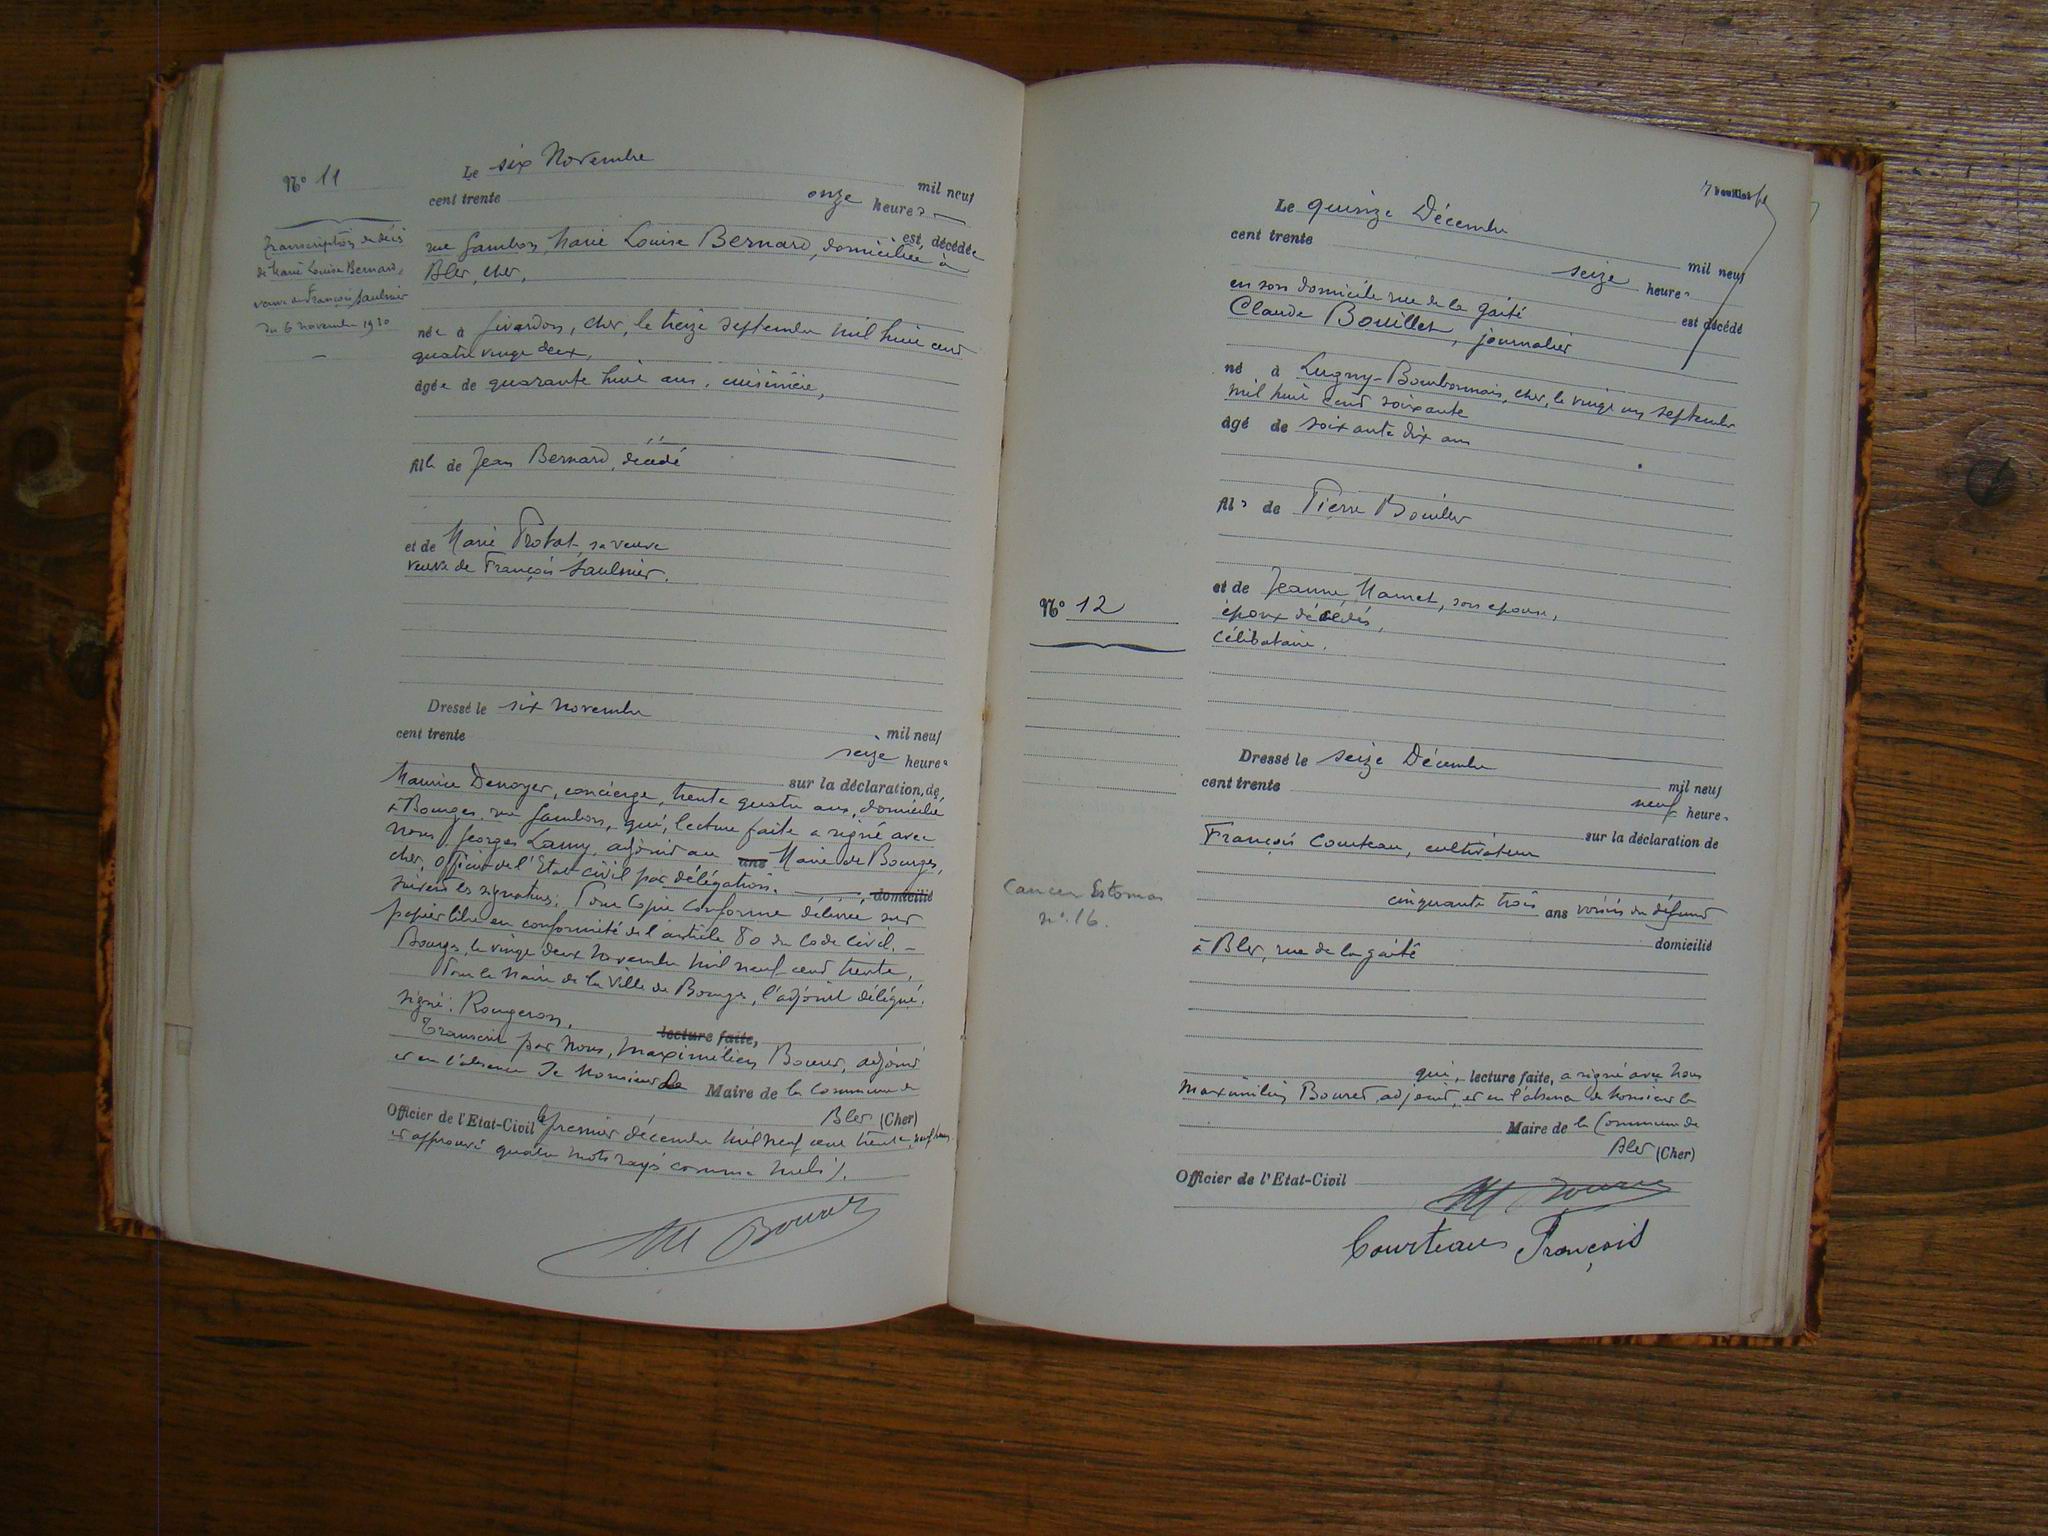 N° 11
Transcription de décès
de Marie Louise Bernard,
veuve de François Saulnier
du 6 novembre 1930
Le six Novembre mil neuf
cent trente onze heures
est décédée
rue Gambon, Marie Louise Bernard, domiciliée à
Blet, Cher,
née à Givardon, Cher, le treize septembre mil huit cent
quatre vingt deux,
âgée de quarante huit ans, cuisinière,
fille de Jean Bernard, décédé
et de Marie Protat, sa veuve
veuve de François Saulnier.
Dressé le six novembre mil neuf
cent trente seize heures
sur la déclaration de
Maurice Denoyer, concierge, trente quatre ans, domicilié
à Bourges, rue Gambon, qui, lecture faite a signé avec
nous, Georges Lamy, adjoint au ans Maire de Bourges,
Cher, Officier de l'Etat civil par délégation. domicilié
suivent les signatures. Pour copie conforme délivrée sur
papier libre en conformité de l'article 80 du Code Civil. –
Bourges, le vingt deux Novembre mil neuf cent trente,
Pour le Maire de la Ville de Bourges, l'adjoint délégué.
signé: Rougeron.
lecture faite,
Transcrit par Nous, Maximilien Bouret, adjoint
et en l'absence de Monsieur le Maire de la Commune de
Blet (Cher)
Officier de l'Etat-Civil le premier décembre mil neuf cent trente, neuf heures
et approuvé quatre mots rayés comme nuls ).
M Bouret
7 Feuillet
Le quinze Décembre mil neuf
cent trente seize heures
est décédé
en son domicile rue de la gaîté
Claude Bouillet, journalier
né à Lugny-Bourbonnais, Cher, le vingt un septembre
mil huit cent soixante
âgé de soixante dix ans
fils de Pierre Bouillet
N° 12
et de Jeanne Mamet, son épouse,
époux décédés,
célibataire.
Dressé le seize Décembre mil neuf
cent trente neuf heures
sur la déclaration de
François Courteau, cultivateur
Cancer Estomac
n° 16.
cinquante trois ans voisin du défunt
domicilié
à Blet, rue de la gaîté
qui, lecture faite, a signé avec Nous
Maximilien Bouret, adjoint, et en l'absence de Monsieur le
Maire de la Commune de
Blet (Cher)
Officier de l'Etat-Civil
M Bouret
Courteau François